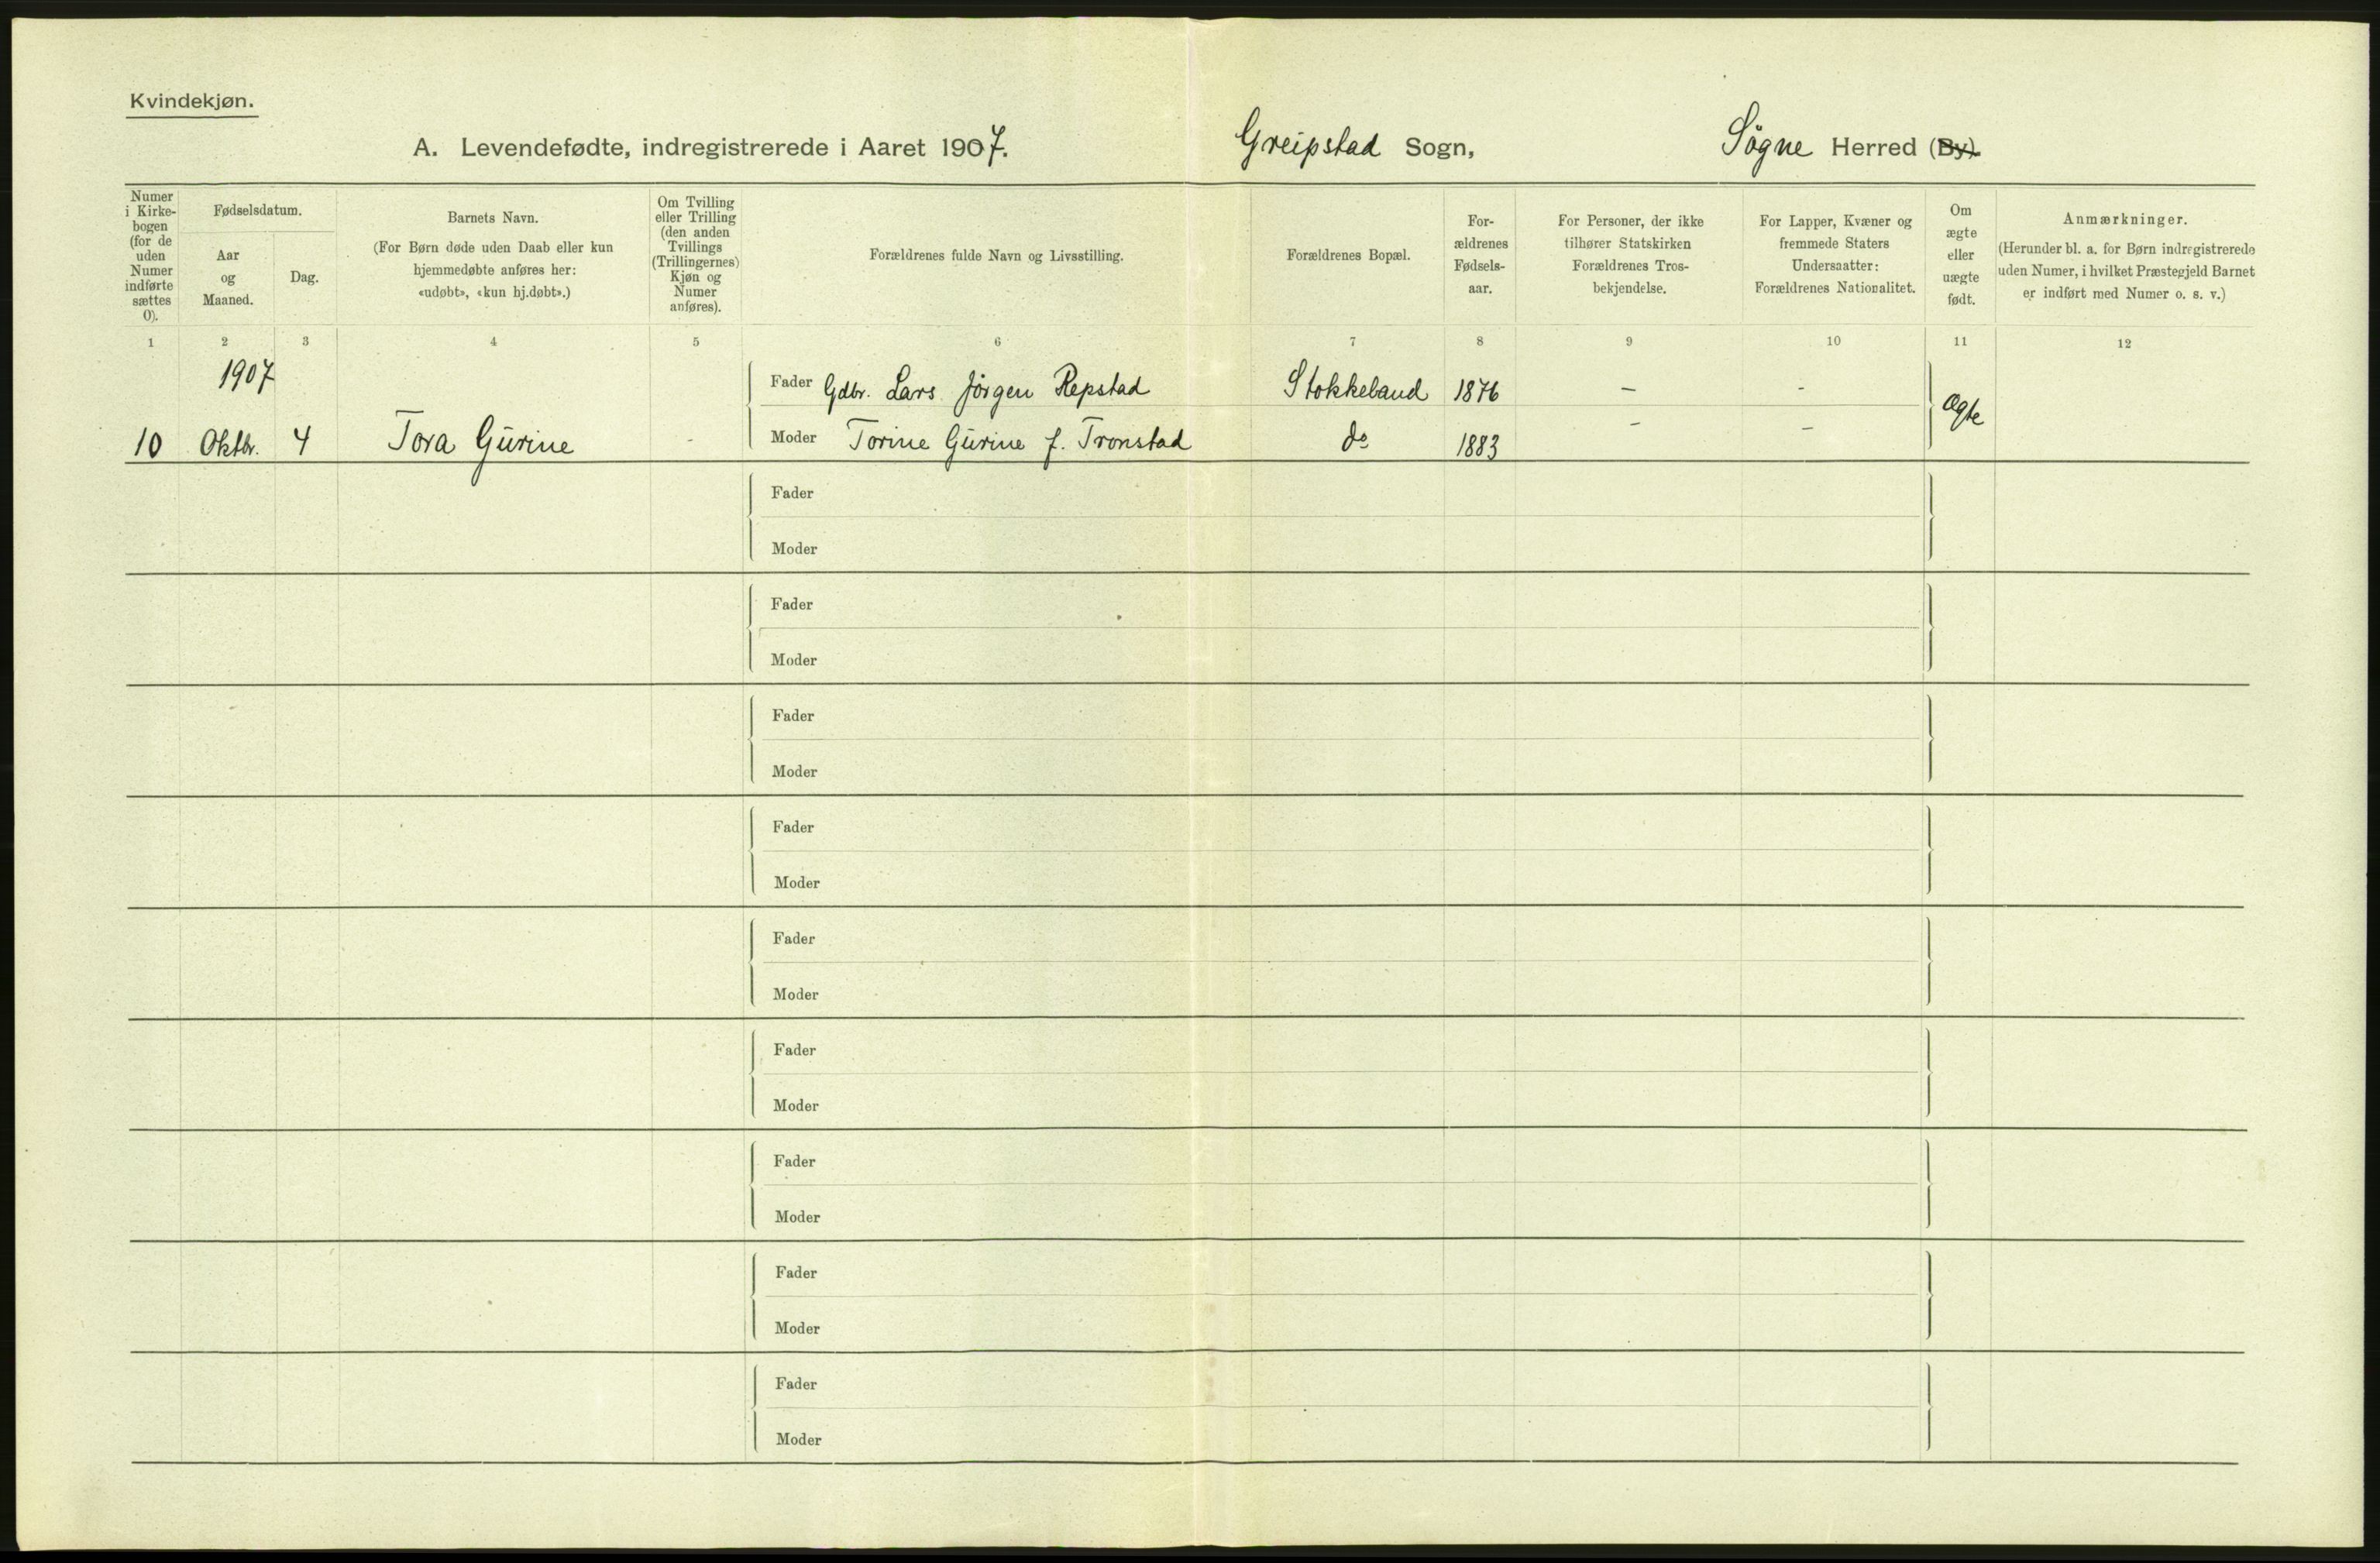 Kvindekjøn.
A. Levendefødte, indregistrerede i Aaret 1907. Greipstad Sogn, Søgne Herred (By).
Numer i Kirke-bogen (for de uden Numer indførte sættes 0).
Fødselsdatum.
Aar og Maaned.
Dag.
Barnets Navn.
(For Børn døde uden Daab eller kun
hjemmedøbte anføres her:
«udøbt», «kun hj.døbt».)
Om Tvilling
eller Trilling
(den anden
Tvillings
(Trillingernes)
Kjøn og
Numer
anføres).
Forældrenes fulde Navn og Livsstilling.
Forældrenes Bopæl.
For-
ældrenes
Fødsels-
aar.
For Personer, der ikke
tilhører Statskirken
Forældrenes Tros-
bekjendelse.
For Lapper, Kvæner og
fremmede Staters
Undersaatter:
Forældrenes Nationalitet.
Om
ægte
eller
uægte
født.
Anmærkninger.
(Herunder bl. a. for Børn indregistrerede
uden Numer, i hvilket Præstegjeld Barnet
er indført med Numer o. s. v.)
1 2 3 4 5 6 7 8 9 10 11 12
1907 Fader Gdbr. Lars Jörgen Repstad Stokkeland 1876 – - Ægte
10 Oktbr. 4 Tora Gurine - Moder Torine Gurine f. Tronstad do 1883 – –
Fader
Moder
Fader
Moder
Fader
Moder
Fader
Moder
Fader
Moder
Fader
Moder
Fader
Moder
Fader
Moder
Fader
Moder